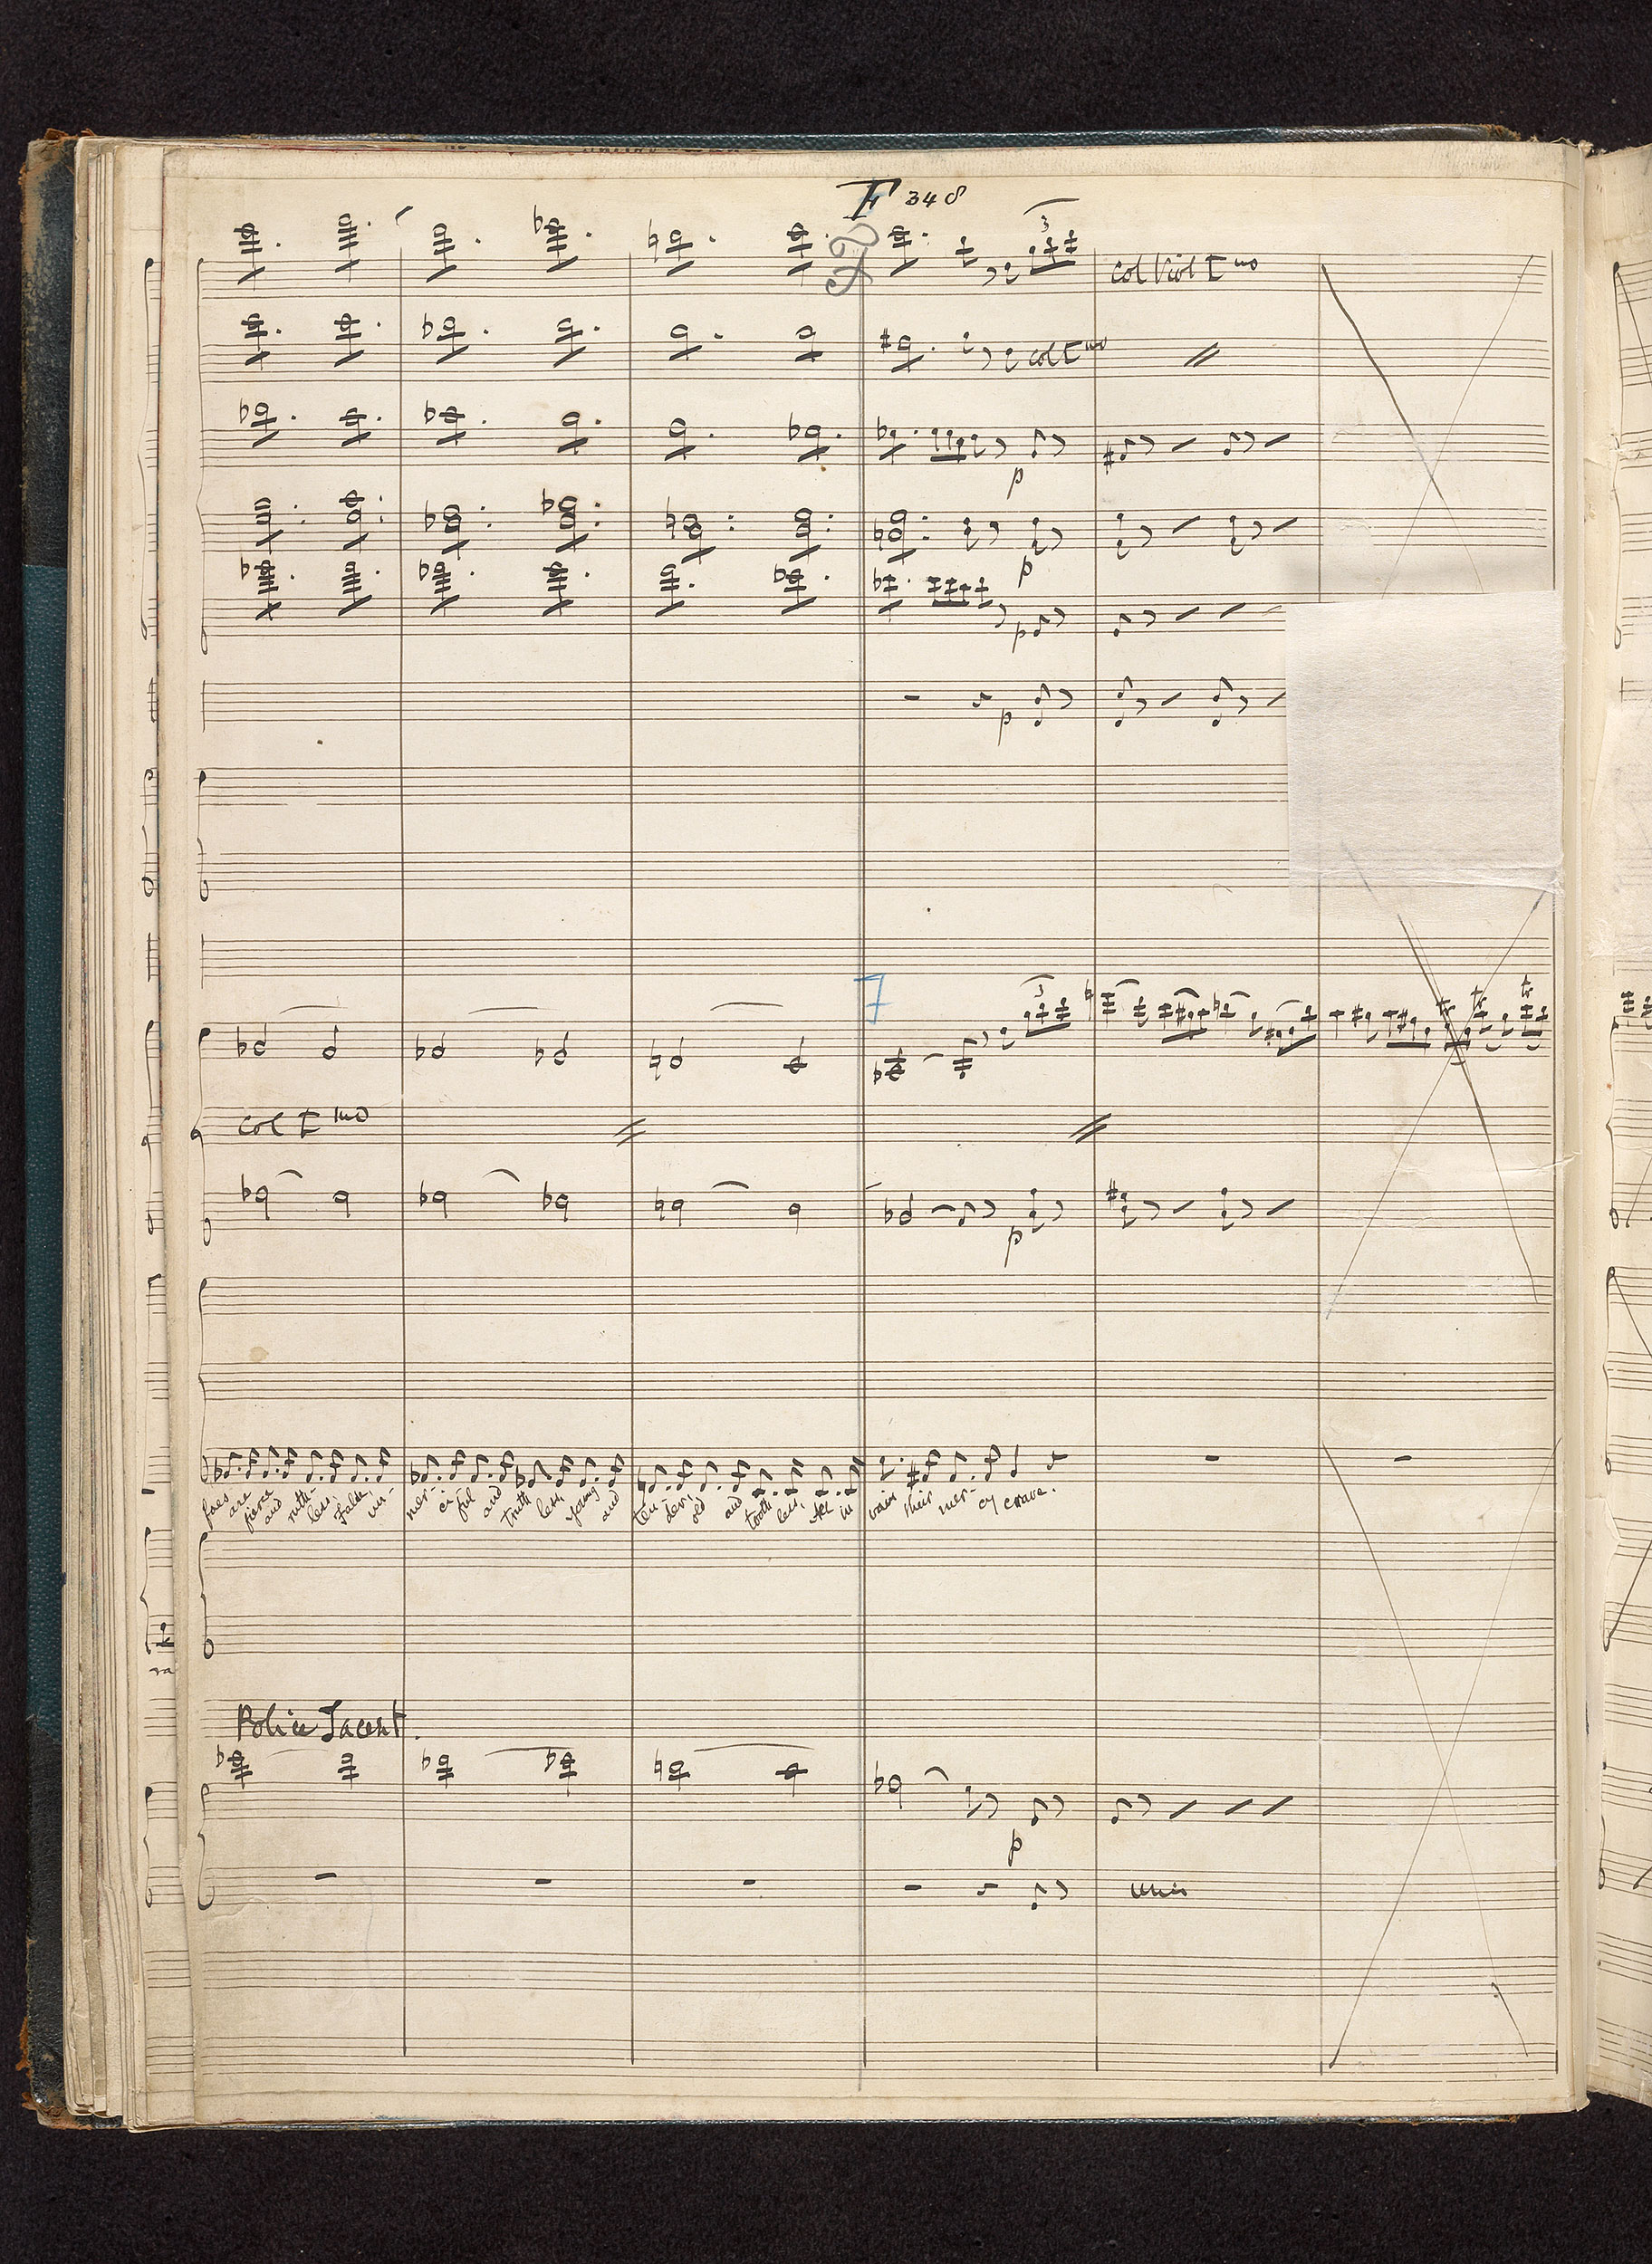 F 348
3
Col Viol I mo
Col I mo
p
p
p
p
7
3
tr tr tr
Col I mo
p
foes are fierce and ruth- less, False, un- mer- ci- ful and truth less, Young and ten- der, old and tooth less, All in vain their mer- cy crave.
ra
Police Tacent.
p
unis